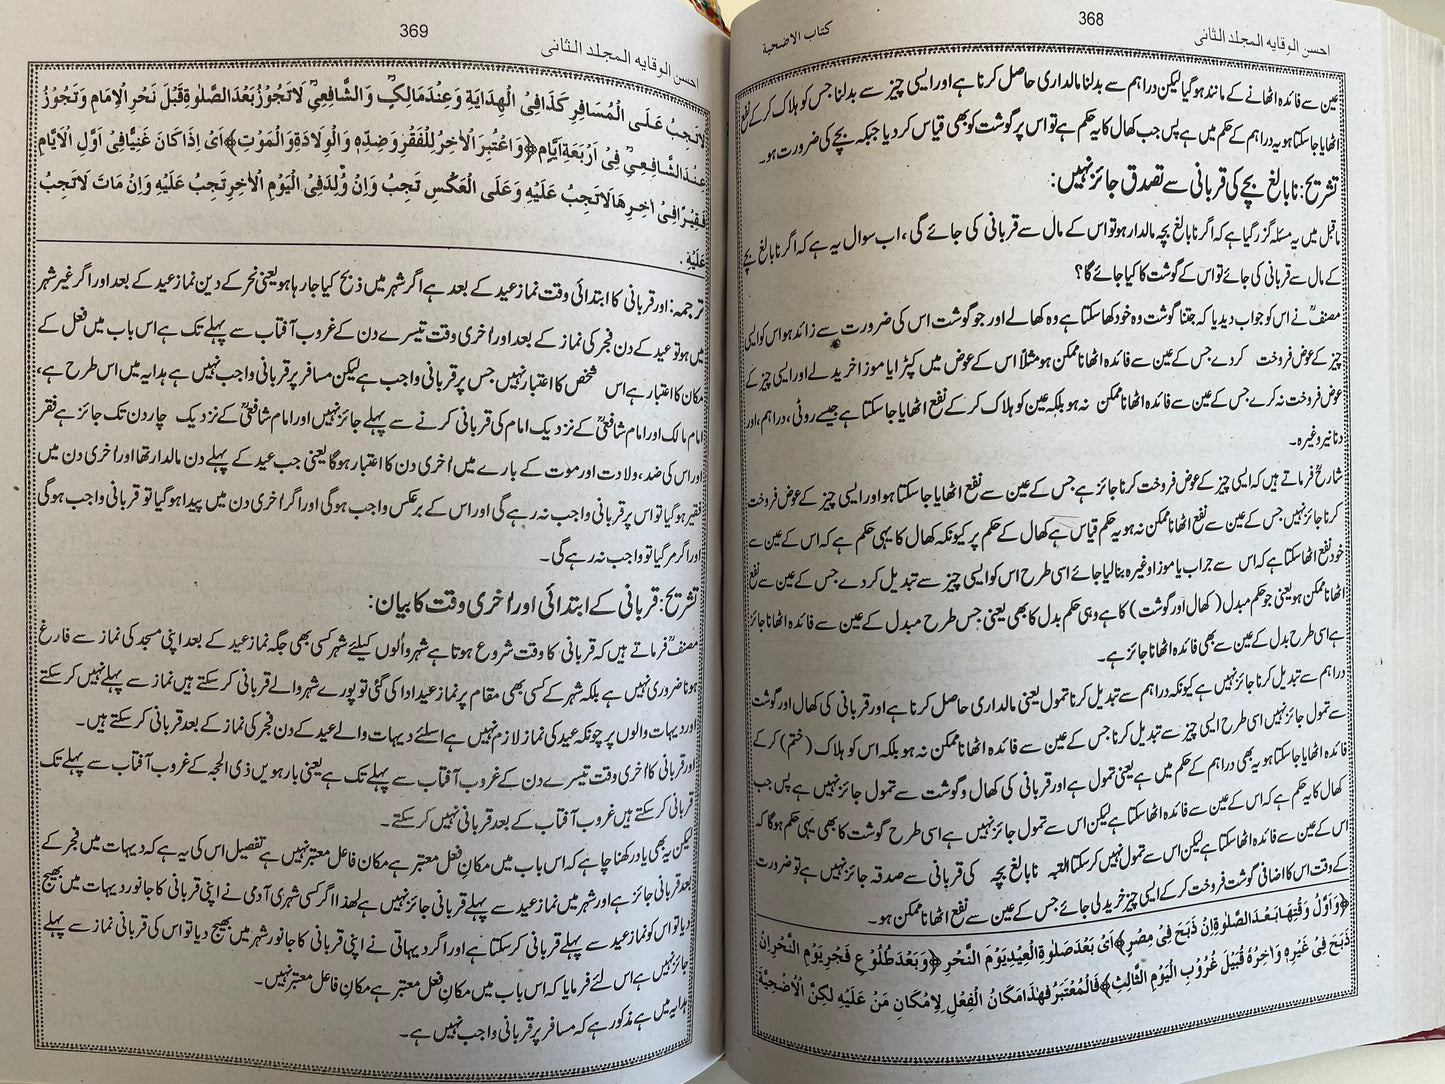 368
احسن الوقایه المجلد الثانی
کتاب الاضحیة
عین سے فائدہ اٹھانے کے مانند ہو گیا لیکن دراہم سے بدلنا مالداری حاصل کرنا ہے اور ایسی چیز سے بدلنا جس کو ہلاک کر کے نفع
اٹھایا جا سکتا ہو یہ دراہم کے حکم میں ہے پس جب کھال کا یہ حکم ہے تو اس پر گوشت کو بھی قیاس کر دیا جبکہ بچے کی ضرورت ہو۔
تشریح: نابالغ بچے کی قربانی سے تصدق جائز نہیں:
ماقبل میں یہ مسئلہ گزر گیا ہے کہ اگر نابالغ بچہ مالدار ہو تو اس کے مال سے قربانی کی جائے گی، اب سوال یہ ہے کہ اگر نابالغ بچے
کے مال سے قربانی کی جائے تو اس کے گوشت کا کیا جائے گا؟
مصنفؒ نے اس کو جواب دیدیا کہ جتنا گوشت وہ خود کھا سکتا ہے وہ کھا لے اور جو گوشت اس کی ضرورت سے زائد ہو اس کو ایسی
چیز کے عوض فروخت کر دے جس کے عین سے فائدہ اٹھانا ممکن ہو مثلاً اس کے عوض میں کپڑا یا موزا خرید لے اور ایسی چیز کے
عوض فروخت نہ کرے جس کے عین سے فائدہ اٹھانا ممکن نہ ہو بلکہ عین کو ہلاک کر کے نفع اٹھایا جا سکتا ہے جیسے روٹی، دراہم، اور
دنانیر وغیرہ۔
شارحؒ فرماتے ہیں کہ ایسی چیز کے عوض فروخت کرنا جائز ہے جس کے عین سے نفع اٹھایا جا سکتا ہو اور ایسی چیز کے عوض فروخت
کرنا جائز نہیں جس کے عین سے نفع اٹھانا ممکن نہ ہو یہ حکم قیاس ہے کھال کے حکم پر کیونکہ کھال کا یہی حکم ہے کہ اس کے عین سے
خود نفع اٹھا سکتا ہے کہ اس سے جراب یا موزا وغیرہ بنا لیا جائے اسی طرح اس کو ایسی چیز سے تبدیل کر دے جس کے عین سے نفع
اٹھانا ممکن ہو یعنی جو حکم مبدل (کھال اور گوشت) کا ہے وہی حکم بدل کا بھی یعنی جس طرح مبدل کے عین سے فائدہ اٹھانا جائز
ہے اسی طرح بدل کے عین سے بھی فائدہ اٹھانا جائز ہے۔
دراہم سے تبدیل کرنا جائز نہیں ہے کیونکہ دراہم سے تبدیل کرنا تمول یعنی مالداری حاصل کرنا ہے اور قربانی کی کھال اور گوشت
سے تمول جائز نہیں اسی طرح ایسی چیز سے تبدیل کرنا جس کے عین سے فائدہ اٹھانا ممکن نہ ہو بلکہ اس کو ہلاک (ختم) کر کے
فائدہ اٹھایا جا سکتا ہو یہ بھی دراہم کے حکم میں ہے یعنی تمول ہے اور قربانی کی کھال و گوشت سے تمول جائز نہیں ہے پس جب
کھال کا یہ حکم ہے کہ اس کے عین سے فائدہ اٹھا سکتا ہے لیکن اس سے تمول جائز نہیں ہے اسی طرح گوشت کا بھی یہی حکم ہو گا کہ
اس کے عین سے فائدہ اٹھا سکتا ہے لیکن اس سے تمول نہیں کر سکتا البتہ نابالغ بچہ کی قربانی سے صدقہ جائز نہیں ہے تو ضرورت
کے وقت اس کا اضافی گوشت فروخت کر کے ایسی چیز خرید لی جائے جس کے عین سے نفع اٹھانا ممکن ہو۔
﴿وَاَوَّلُ وَقْتِهَا بَعْدَ الصَّلٰوةِ اِنْ ذَبَحَ فِیْ مِصْرٍ﴾ اَیْ بَعْدَ صَلٰوةِ الْعِیْدِ یَوْمَ النَّحْرِ ﴿وَبَعْدَ طُلُوْعِ فَجْرِ یَوْمِ النَّحْرِ اِنْ
ذَبَحَ فِیْ غَیْرِهٖ وَاٰخِرُهٗ قُبَیْلَ غُرُوْبِ الْیَوْمِ الثَّالِثِ﴾ فَالْمُعْتَبَرُ فِیْ هٰذَا مَکَانُ الْفِعْلِ لَا مَکَانُ مَنْ عَلَیْهِ لٰکِنَّ الْاُضْحِیَّةَ
369
احسن الوقایه المجلد الثانی
لَا تَجِبُ عَلَی الْمُسَافِرِ کَذَا فِی الْهِدَایَةِ وَعِنْدَ مَالِکٍؒ وَالشَّافِعِیِّؒ لَا تَجُوْزُ بَعْدَ الصَّلٰوةِ قَبْلَ نَحْرِ الْاِمَامِ وَتَجُوْزُ
عِنْدَ الشَّافِعِیِّؒ فِیْ اَرْبَعَةِ اَیَّامٍ ﴿وَاعْتُبِرَ الْاٰخِرُ لِلْفَقْرِ وَضِدِّهٖ وَالْوِلَادَةِ وَالْمَوْتِ﴾ اَیْ اِذَا کَانَ غَنِیًّا فِیْ اَوَّلِ الْاَیَّامِ
فَقِیْرًا فِیْ اٰخِرِهَا لَا تَجِبُ عَلَیْهِ وَعَلَی الْعَکْسِ تَجِبُ وَاِنْ وُلِدَ فِی الْیَوْمِ الْاٰخِرِ تَجِبُ عَلَیْهِ وَاِنْ مَاتَ لَا تَجِبُ
عَلَیْهِ.
ترجمہ: اور قربانی کا ابتدائی وقت نماز عید کے بعد ہے اگر شہر میں ذبح کیا جا رہا ہو یعنی نحر کے دن نماز عید کے بعد اور اگر غیر شہر
میں ہو تو عید کے دن فجر کی نماز کے بعد اور اٰخری وقت تیسرے دن کے غروب آفتاب سے پہلے تک ہے اس باب میں فعل کے
مکان کا اعتبار ہے اس شخص کا اعتبار نہیں جس پر قربانی واجب ہے لیکن مسافر پر قربانی واجب نہیں ہے ہدایہ میں اس طرح ہے،
امام مالک اور امام شافعیؒ کے نزدیک امام کی قربانی کرنے سے پہلے جائز نہیں اور امام شافعیؒ کے نزدیک چار دن تک جائز ہے فقر
اور اس کی ضد، ولادت اور موت کے بارے میں اٰخری دن کا اعتبار ہو گا یعنی جب عید کے پہلے دن مالدار تھا اور اٰخری دن میں
فقیر ہو گیا تو اس پر قربانی واجب نہ رہے گی اور اس کے برعکس واجب ہو گی اور اگر اٰخری دن میں پیدا ہو گیا تو قربانی واجب ہو گی
اور اگر مر گیا تو واجب نہ رہے گی۔
تشریح: قربانی کے ابتدائی اور اٰخری وقت کا بیان:
مصنفؒ فرماتے ہیں کہ قربانی کا وقت شروع ہوتا ہے شہر والوں کیلئے شہر کسی بھی جگہ نماز عید کے بعد اپنی مسجد کی نماز سے فارغ
ہونا ضروری نہیں ہے بلکہ شہر کے کسی بھی مقام پر نماز عید ادا کی گئی تو پورے شہر والے قربانی کر سکتے ہیں نماز سے پہلے نہیں کر سکتے
اور دیہات والوں پر چونکہ عید کی نماز لازم نہیں ہے اسلئے دیہات والے عید کے دن فجر کی نماز کے بعد قربانی کر سکتے ہیں۔
اور قربانی کا اٰخری وقت تیسرے دن کے غروب آفتاب سے پہلے تک ہے یعنی بارہویں ذی الحجہ کے غروب آفتاب سے پہلے تک
قربانی کر سکتے ہیں غروب آفتاب کے بعد قربانی نہیں کر سکتے۔
لیکن یہ بھی یاد رکھنا چاہے کہ اس باب میں مکانِ فعل معتبر ہے مکان فاعل معتبر نہیں ہے تفصیل اس کی یہ ہے کہ دیہات میں فجر کے
بعد قربانی جائز ہے اور شہر میں نماز عید سے پہلے قربانی جائز نہیں ہے لھذا اگر کسی شہری آدمی نے اپنی قربانی کا جانور دیہات میں بھیج
دیا تو اس کو نماز عید سے پہلے قربانی کر سکتا ہے اور اگر دیہاتی نے اپنی قربانی کا جانور شہر میں بھیج دیا تو اس کی قربانی نماز سے پہلے
جائز نہیں ہے اس لئے فرمایا کہ اس باب میں مکانِ فعل معتبر ہے مکانِ فاعل معتبر نہیں۔
ہدایہ میں ہے مذکور ہے کہ مسافر پر قربانی واجب نہیں ہے۔